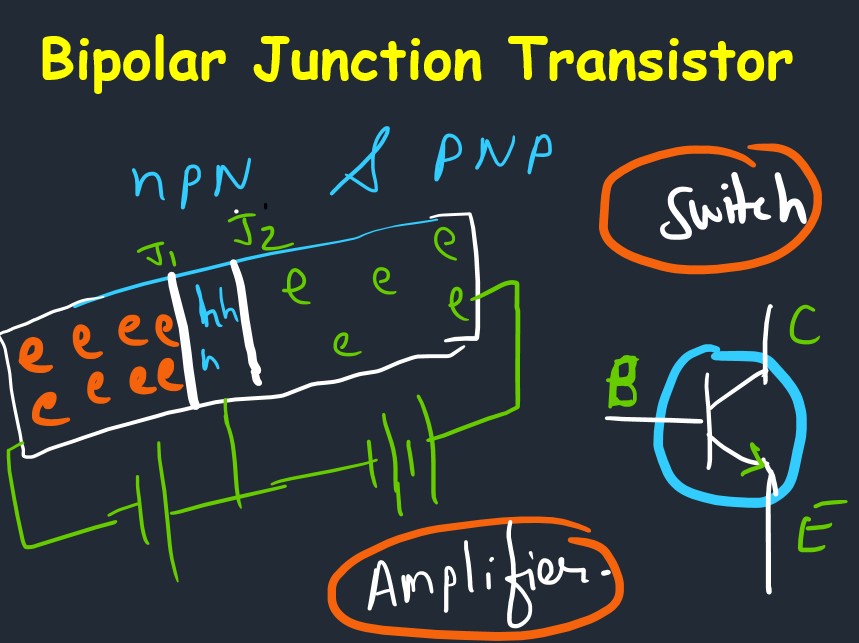 Bipolar Junction Transistor
nPN & PNP
Switch
J1 J2
e e e e hh e e e
e e e e h e e
C
B
E
Amplifier.